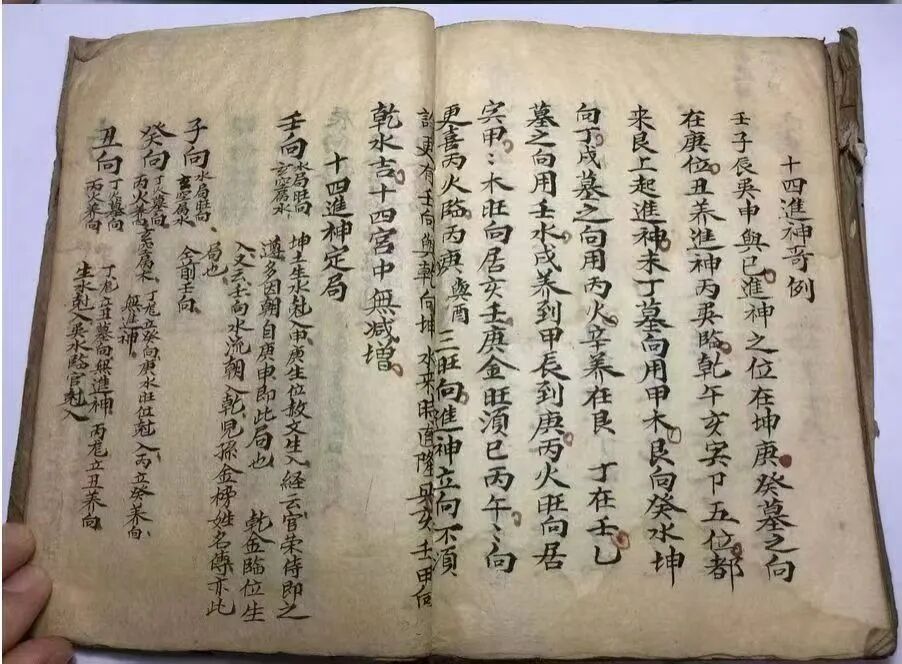 十四進神哥例
壬子辰英申與巳進神之位在坤庚癸墓之向
在庚位丑養進神丙英臨乾午亥寅卩五位都
来艮上起進神未丁墓向用甲木艮向癸水坤
向丁戌墓之向用丙火辛養在艮丁在壬乙
墓之向用壬水戌养到甲辰到庚丙火旺向居
寅甲〻木旺向居亥壬庚金旺須巳丙午〻向
更喜丙火臨丙庚與酉三旺向進神立向不須
更有壬向與乾向坤水来時直隆異亥壬甲向
乾水吉十四宫中無減增
十四進神定局
壬向水局旺向玄空属水
坤土生水剋入申庚生位敖文生入経云官荣侍即之
遵多因朝自庚申即此局也乾金臨位生
入又云壬向水流朝入乾児孫金榜姓名傳亦此
局也
子向水局旺向玄空属水仝前壬向
癸向丁火墓向丙火養向玄空属木丁龙立癸向庚水旺位剋入丙立癸养向
無進神
丑向丁火墓向丙火养向丁龙立丑墓向無進神丙龙立丑养向
生水剋入英水臨官剋入